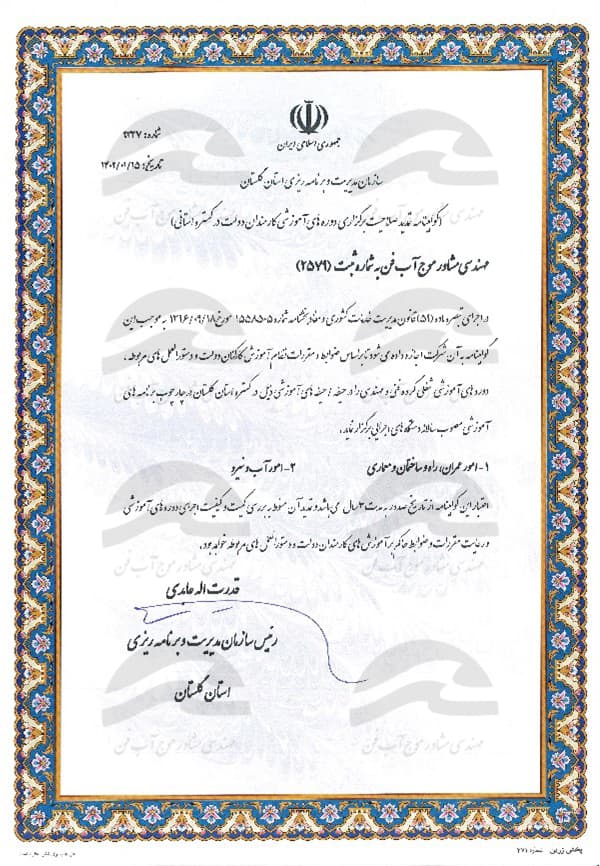 جمهوری اسلامی ایران
شماره: ۲۲۳۷
تاریخ: ۱۴۰۲/۰۱/۱۵
سازمان مدیریت و برنامه ریزی استان گلستان
(گواهینامه تمدید صلاحیت برگزاری دوره های آموزشی کارمندان دولت در گستره استانی)
مهندسی مشاور موج آب فن به شماره ثبت (۲۵۷۹)
در اجرای تبصره ماده (۵۱) قانون مدیریت خدمات کشوری و مفاد بخشنامه شماره ۱۵۵۸۵۰۵ مورخ ۱۳۹۶/۰۹/۱۸ به موجب این
گواهینامه به آن شرکت اجازه داده می شود تا براساس ضوابط و مقررات نظام آموزش کارکنان دولت و دستورالعمل های مربوطه ،
دوره های آموزشی شغلی گروه فنی و مهندسی را در حیطه / حیطه های آموزشی ذیل در گستره استان گلستان در چارچوب برنامه های
آموزشی مصوب سالانه دستگاه های اجرایی برگزار نماید.
۱- امور عمران، راه و ساختمان و معماری ۲- امور آب و نیرو
اعتبار این گواهینامه از تاریخ صدور به مدت ۳ سال می باشد و تمدید آن منوط به بررسی کمیت و کیفیت اجرای دوره های آموزشی
و رعایت مقررات و ضوابط حاکم بر آموزش های کارمندان دولت و دستورالعمل های مربوطه خواهد بود.
قدرت اله عابدی
رئیس سازمان مدیریت و برنامه ریزی
استان گلستان
مهندسی مشاور موج آب فن
مهندسی مشاور موج آب فن
پخش زرین شماره ۲۷۱